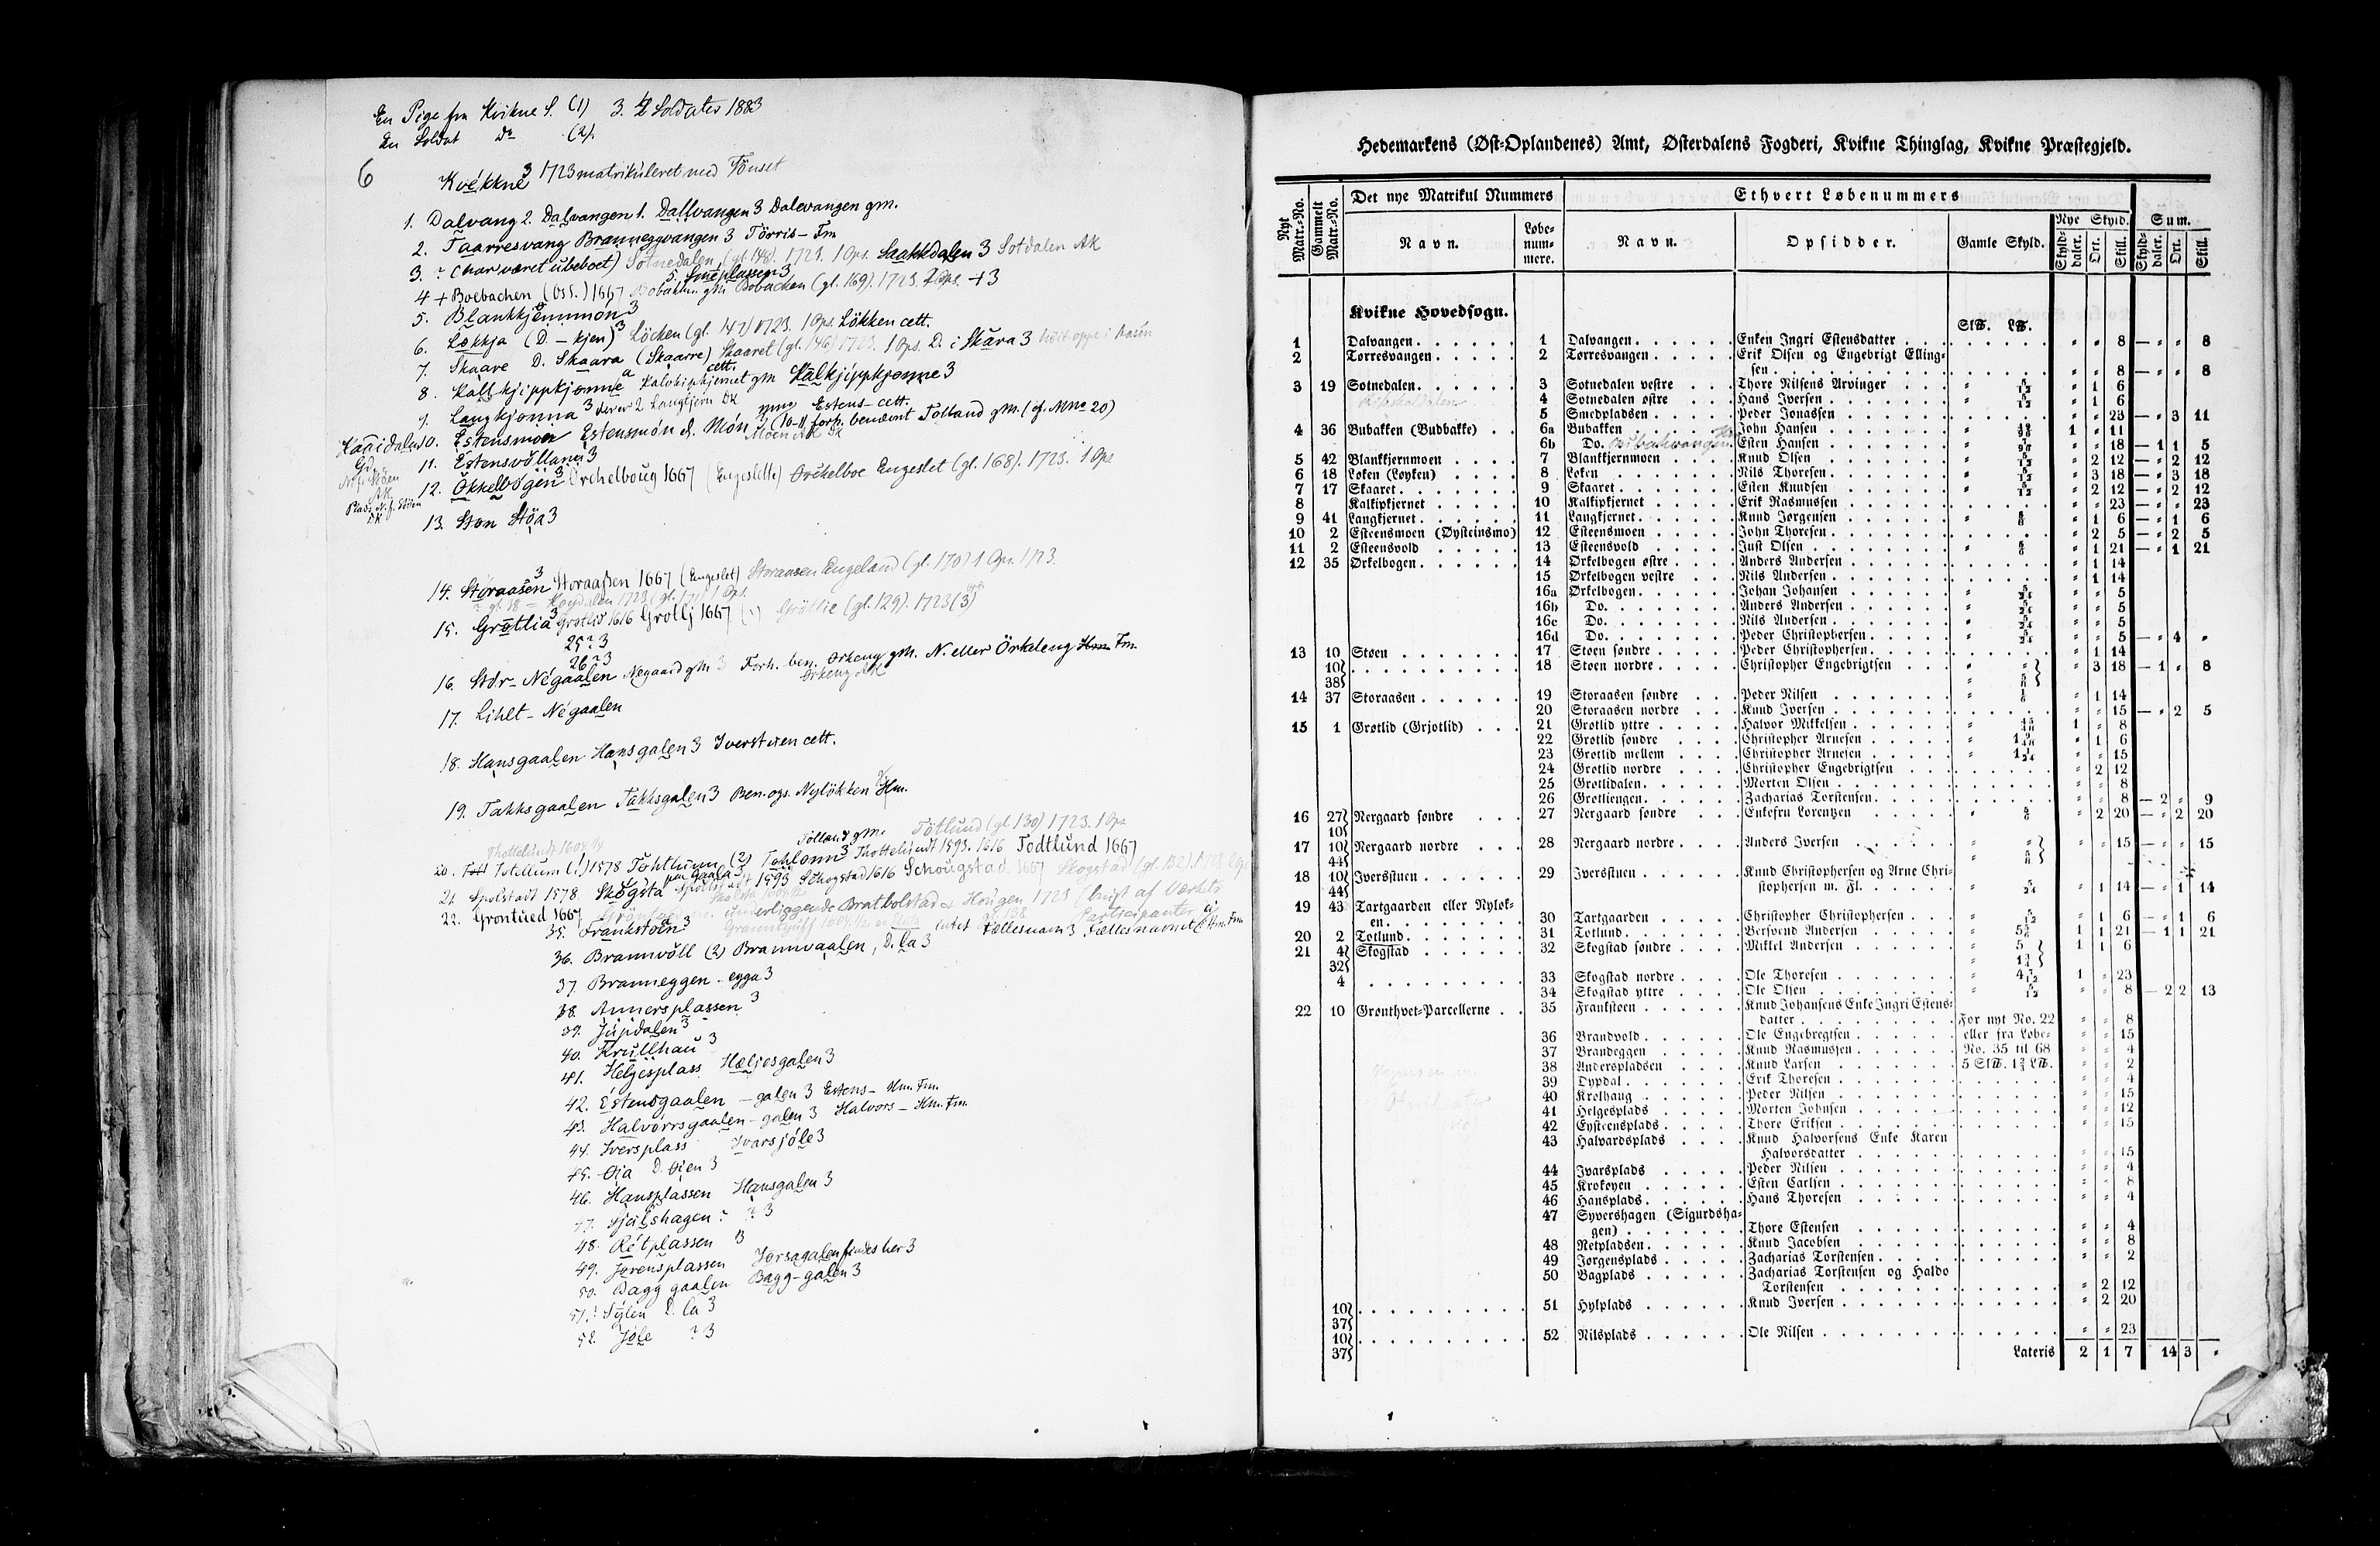 En Pige fra Kvikne S. (1) 3. 2 Soldater 1883
En Soldat do (2).
6 Kvékkne 3 1723 matrikuleret med Tönset
1. Dalvang 2. Dalvangen 1. Dallvangen 3 Dalevangen gm.
2. Taarresvang Branneggvangen 3 Törris- Fm
3. ? (har været ubeboet) Sotnedalen (gl. 148). 1723. 1 Ops. Saahkdalen 3 Sotdalen AK
5. Sméplassen 3
4 + Boebachen (Osl.) 1667 gm Bobachen (gl. 169). 1723. 2 Ops. + 3
5. Blankkjennmón 3
6. Løkkja (D. - kjen) 3 Löcken (gl. 147) 1723. 1 Ops. Lökken cett.
7. Skaare D. Skaara (Skaarre) Skaaret (gl. 146) 1723. 1 Ops. D. i Skara 3
8. Kallkjippkjonne Kalvkipkjernet gm cett. Kalkjippkjonne 3
9. Langkjonna 3 derer 2 Langtjern AK
10. Estensmoen Estensmón d. Món 3 Estens- cett. (10-11 forh. benævnt Tolland gm. (if. Mno 20)
11. Estensvöllann 3
12. Okkelbögen 3 Orchelboug 1667 (Engeslette) Orckelboe Engeslet (gl. 168). 1723. 1 Ops
13. Støn Stöa 3
14. Storaasen 3 Storaaßen 1667 (Engeslet) Storaasen Engeland (gl. 170) 1 Ops. 1723.
15. Grøtlia 3 Grotlid 1616 Grotlj 1667 Gröttlie (gl. 129). 1723 (3)
25 ? 3
26 ? 3
16. Stór-Négaalen Negaard gm 3 Forh. ben. Orkeng gM. N. eller Örkeleng Hm Fm.
Orkeng AK
17. Lihlt-Négaalen
18. Hansgaalen Hansgalen 3 Iverstuen cett.
19. Takksgaalen Takksgalen 3 Ben. ogs. Nyløkken Hm.
Tolland gm. Tötlund (gl. 130) 1723. 1 Ops
20. Totellum (1) 1578 Tohtlumm (2) Tohlonn 3 Thottelundt 1593. 1616 Todtlund 1667
21. Spolstadt 1578 Skógsta 1593 Schogstad 1616 Schougstad 1667 Skogstad (gl. 132)
22. Grontued 1667 underliggende Bratbolstad & Hougen 1723 (brugt af Værkets Participanter
35. Frankstøen 3 Fællesnavn 3 Fællesnavnet Hm. Fm.
36. Brannvöll (2) Brannvaalen, D. la 3
37. Branneggen -egga 3
38. Annersplassen 3
39. Jupdalen 3
40. Krullhau 3
41. Helgesplass Hæljesgalen 3
42. Estensgaalen -galen 3 Estens- Hm. Fm.
43. Halvorrsgaalen -galen 3 Halvors- Hm. Fm.
44. Iversplass Ivarsjóle 3
45. Øia D. Øien 3
46. Hansplassen Hansgalen 3
47. Sjulshagen ? ? 3
48. Rétplassen 3
49. Jørensplassen Jørsagalen findes her 3
50. Bagg gaalen Bagg-galen 3
51. ? Sylen D. la 3
52. Jóle ? 3
Hedemarkens (Øst-Oplandenes) Amt, Østerdalens Fogderi, Kvikne Thinglag, Kvikne Præstegjeld.
Nyt Matr.-No. Gammelt Matr.-No. Det nye Matrikul Nummers Ethvert Løbenummers
Navn. Løbenummere. Navn. Opsidder. Gamle Skyld. Nye Skyld. Sum.
Skylddaler. Ort. Skill. Skylddaler. Ort. Skill.
Kvikne Hovedsogn.
1 Dalvangen 1 Dalvangen Enken Ingri Estensdatter " " 8 — " " 8
2 Tørresvangen 2 Tørresvangen Erik Olsen og Engebrigt Ellingsen " " 8 — " " 8
3 19 Sotnedalen 3 Sotnedalen vestre Thore Nilsens Arvinger " 5/12 " 1 6
4 Sotnedalen østre Hans Iversen " 5/12 " 1 6
5 Smedpladsen Peder Jonassen " " 23 — " 3 11
4 36 Bubakken (Budbakke) 6a Bubakken John Hansen 1 " 11
6b Do. Esten Hansen " " 18 — 1 1 5
5 42 Blankkjernmoen 7 Blankkjernmoen Knud Olsen " 5/12 " 2 12 — " 2 12
6 18 Løken (Løyken) 8 Løken Nils Thoresen " 5/12 " 3 18 — " 3 18
7 17 Skaaret 9 Skaaret Esten Knudsen " 5/12 " 2 12 — " 2 12
8 Kalkipkjernet 10 Kalkipkjernet Erik Rasmussen " " 23 — " " 23
9 41 Langkjernet 11 Langkjernet Knud Jørgensen " 1 6 — " 1 6
10 2 Esteensmoen (Øysteinsmo) 12 Esteensmoen John Thoresen " 2 5 — " 2 5
11 2 Esteensvold 13 Esteensvold Just Olsen " 1 21 — " 1 21
12 35 Ørkelbogen 14 Ørkelbogen østre Anders Andersen " 1 14
15 Ørkelbogen vestre Nils Andersen " 1 14
16a Ørkelbogen Johan Johansen " 5/24 " " 5
16b Do. Anders Andersen " 5/24 " " 5
16c Do. Nils Andersen " 5/24 " " 5
16d Do. Peder Christophersen " 5/24 " " 5 — " 4 "
13 10 Støen 17 Støen søndre Peder Christophersen " 1 14
10 38 18 Støen nordre Christopher Engebrigtsen " 3 18 — 1 " 8
14 37 Storaasen 19 Storaasen søndre Peder Nilsen " 1 14
20 Storaasen nordre Knud Iversen " " 15 — " 2 5
15 1 Grøtlid (Grjotlid) 21 Grøtlid yttre Halvor Mikkelsen 1 " 8
22 Grøtlid søndre Christopher Arnesen " 1 6
23 Grøtlid mellem Christopher Arnesen " " 15
24 Grøtlid nordre Christopher Engebrigtsen " 2 12
25 Grøtlidalen Morten Olsen " " 8
26 Grøtliengen Zacharias Torstensen " " 8 — 2 " 9
16 27 10 Nergaard søndre 27 Nergaard søndre Enkefru Lorentzen " 2 20 — " 2 20
17 10 44 Nergaard nordre 28 Nergaard nordre Anders Iversen " " 15 — " " 15
18 10 44 Iversstuen 29 Iversstuen Knud Christophersen og Arne Christophersen m. Fl. " 5/24 " 1 14 — " 1 14
19 43 Tartgaarden eller Nyløkken 30 Tartgaarden Christopher Christophersen " 5/12 " 1 6 — " 1 6
20 2 Totlund 31 Totlund Bersvend Andersen 1 1 21 — 1 1 21
21 4 32 Skogstad 32 Skogstad søndre Mikkel Andersen 1 1 6
4 33 Skogstad nordre Ole Thoresen " 4 7/12 1 " 23
34 Skogstad yttre Ole Olsen " 5/12 " " 8 — 2 2 13
22 10 Grønthvet-Parcellerne 35 Frankstøen Knud Johansens Enke Ingri Estensdatter For nyt No. 22 " " 8
36 Brandvold Ole Engebregtsen eller fra Løbe- " " 15
37 Brandeggen Knud Rasmussen No. 35 til 68 " " 4
38 Anderspladsen Knud Larsen " " 2
39 Dypdal Erik Thoresen " " 4
40 Krolhaug Peder Nilsen " " 15
41 Helgesplads Morten Johnsen " " 12
42 Eysteensplads Thore Eriksen " " 15
43 Halvardsplads Knud Halvorsens Enke Karen Halvorsdatter " " 15
44 Ivarsplads Peder Nilsen " " 4
45 Krokøyen Esten Carlsen " " 8
46 Hansplads Hans Thoresen " " 4
47 Syvershagen (Sigurdshagen) Thore Estensen " " 4
48 Netpladsen Knud Jacobsen " " 8
49 Jørgensplads Zacharias Torstensen " " 2
50 Bagplads Zacharias Torstensen og Haldo Torstensen " 2 12
10 37 51 Hylplads Knud Iversen " 2 20
10 37 52 Nilsplads Ole Nilsen " " 23
Lateris 2 1 7 14 3 "